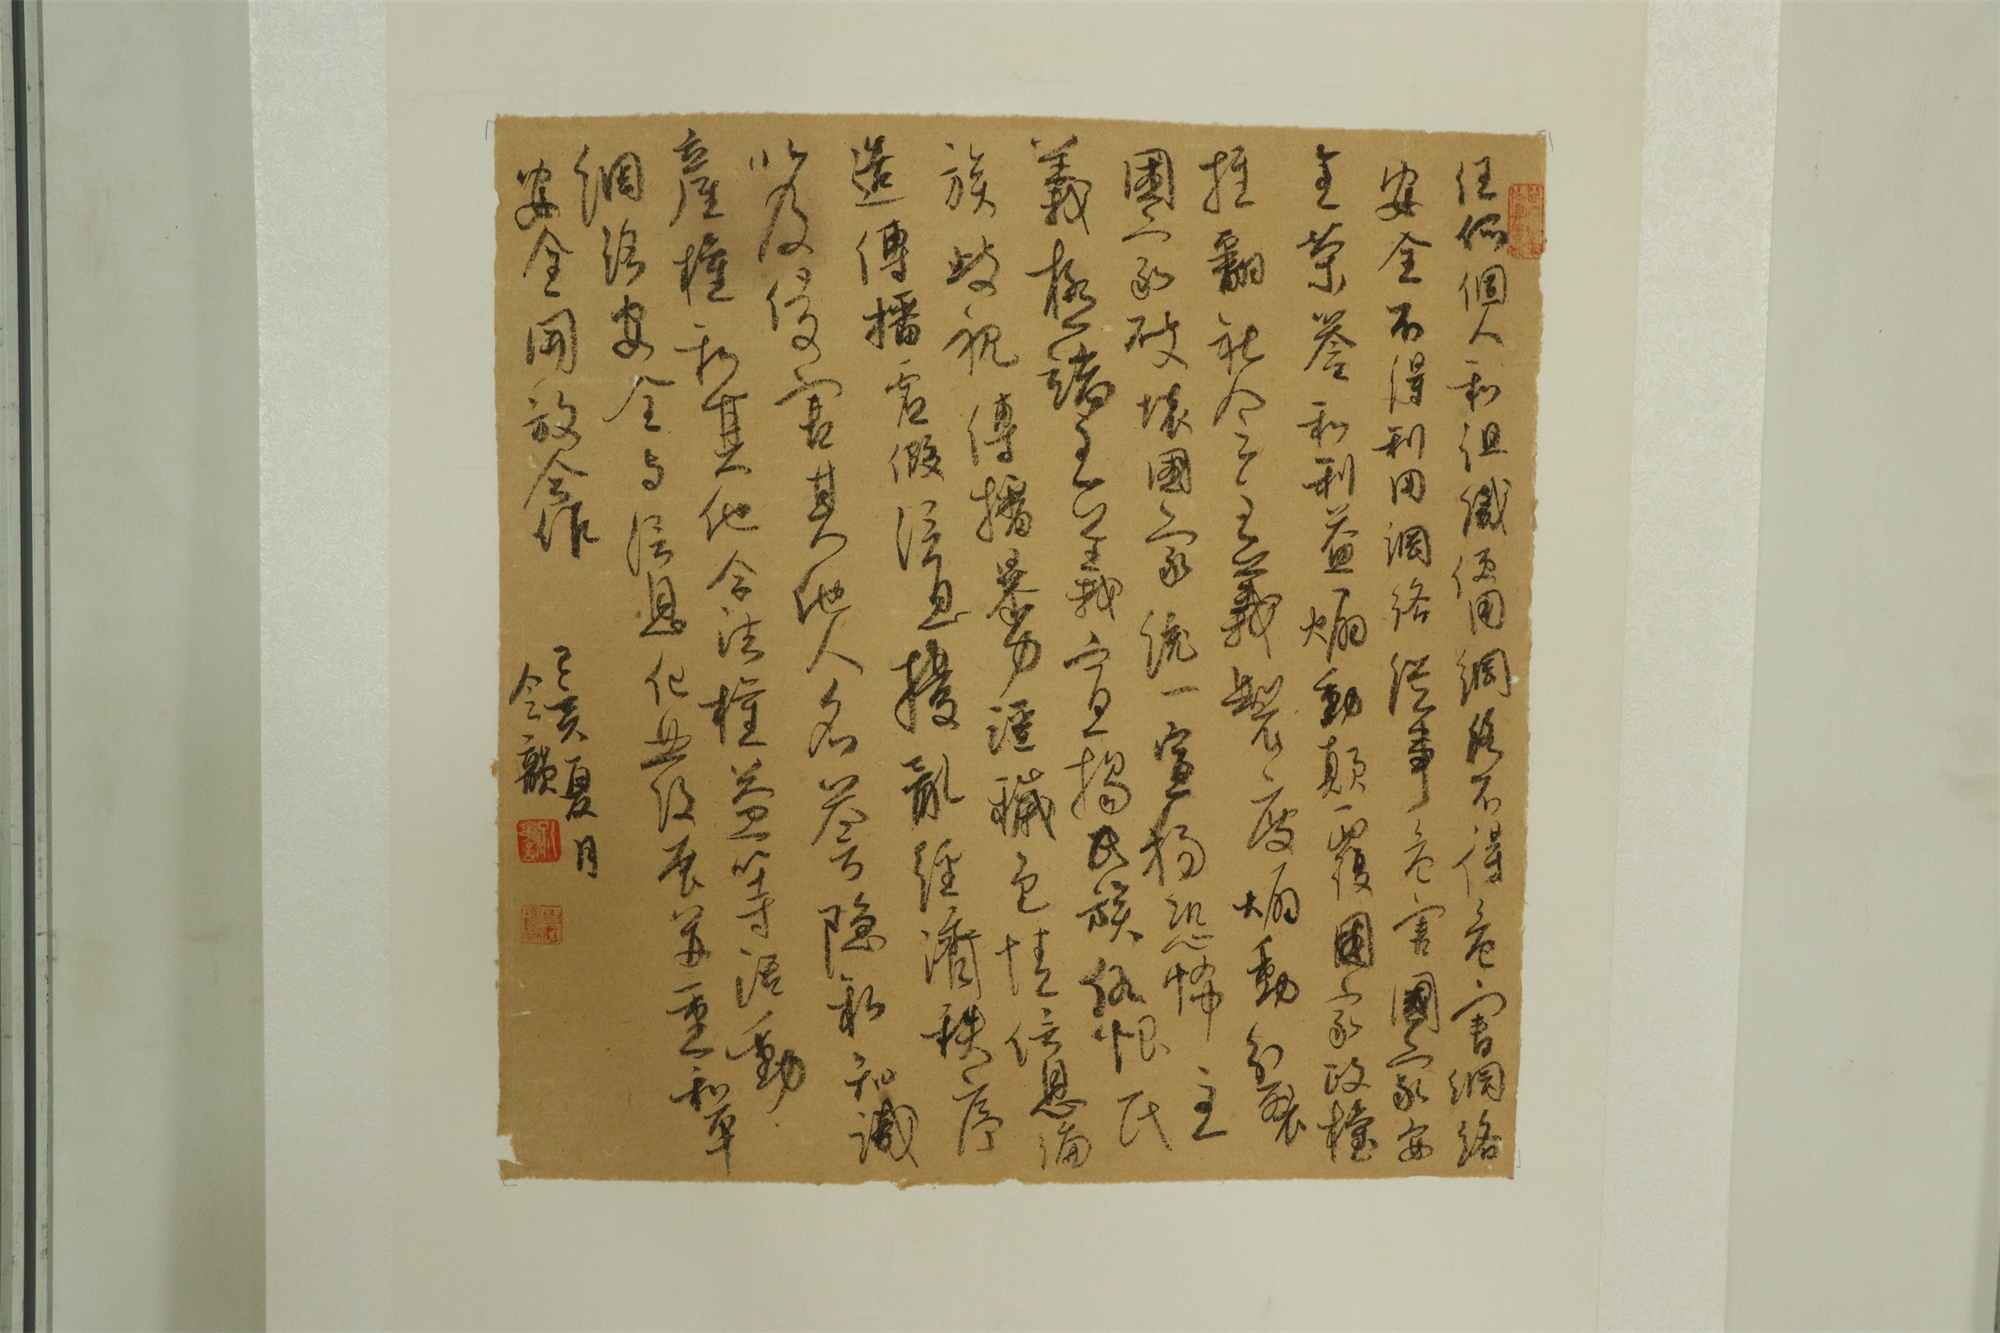 任何個人和組織使用網絡不得危害網絡
安全不得利用網絡從事危害國家安
全榮譽和利益煽動顛覆國家政權
推翻社會主義製度煽動分裂
國家破壞國家統一宣揚恐怖主
義極端主義宣揚民族仇恨民
族歧視傳播暴力淫穢色情信息編
造傳播虛假信息擾亂經濟秩序
以及侵害其他人名譽隱私知識
產權和其他合法權益等活動
網絡安全與信息化並後展並重和平
安全開放合作
己亥夏月
令顏